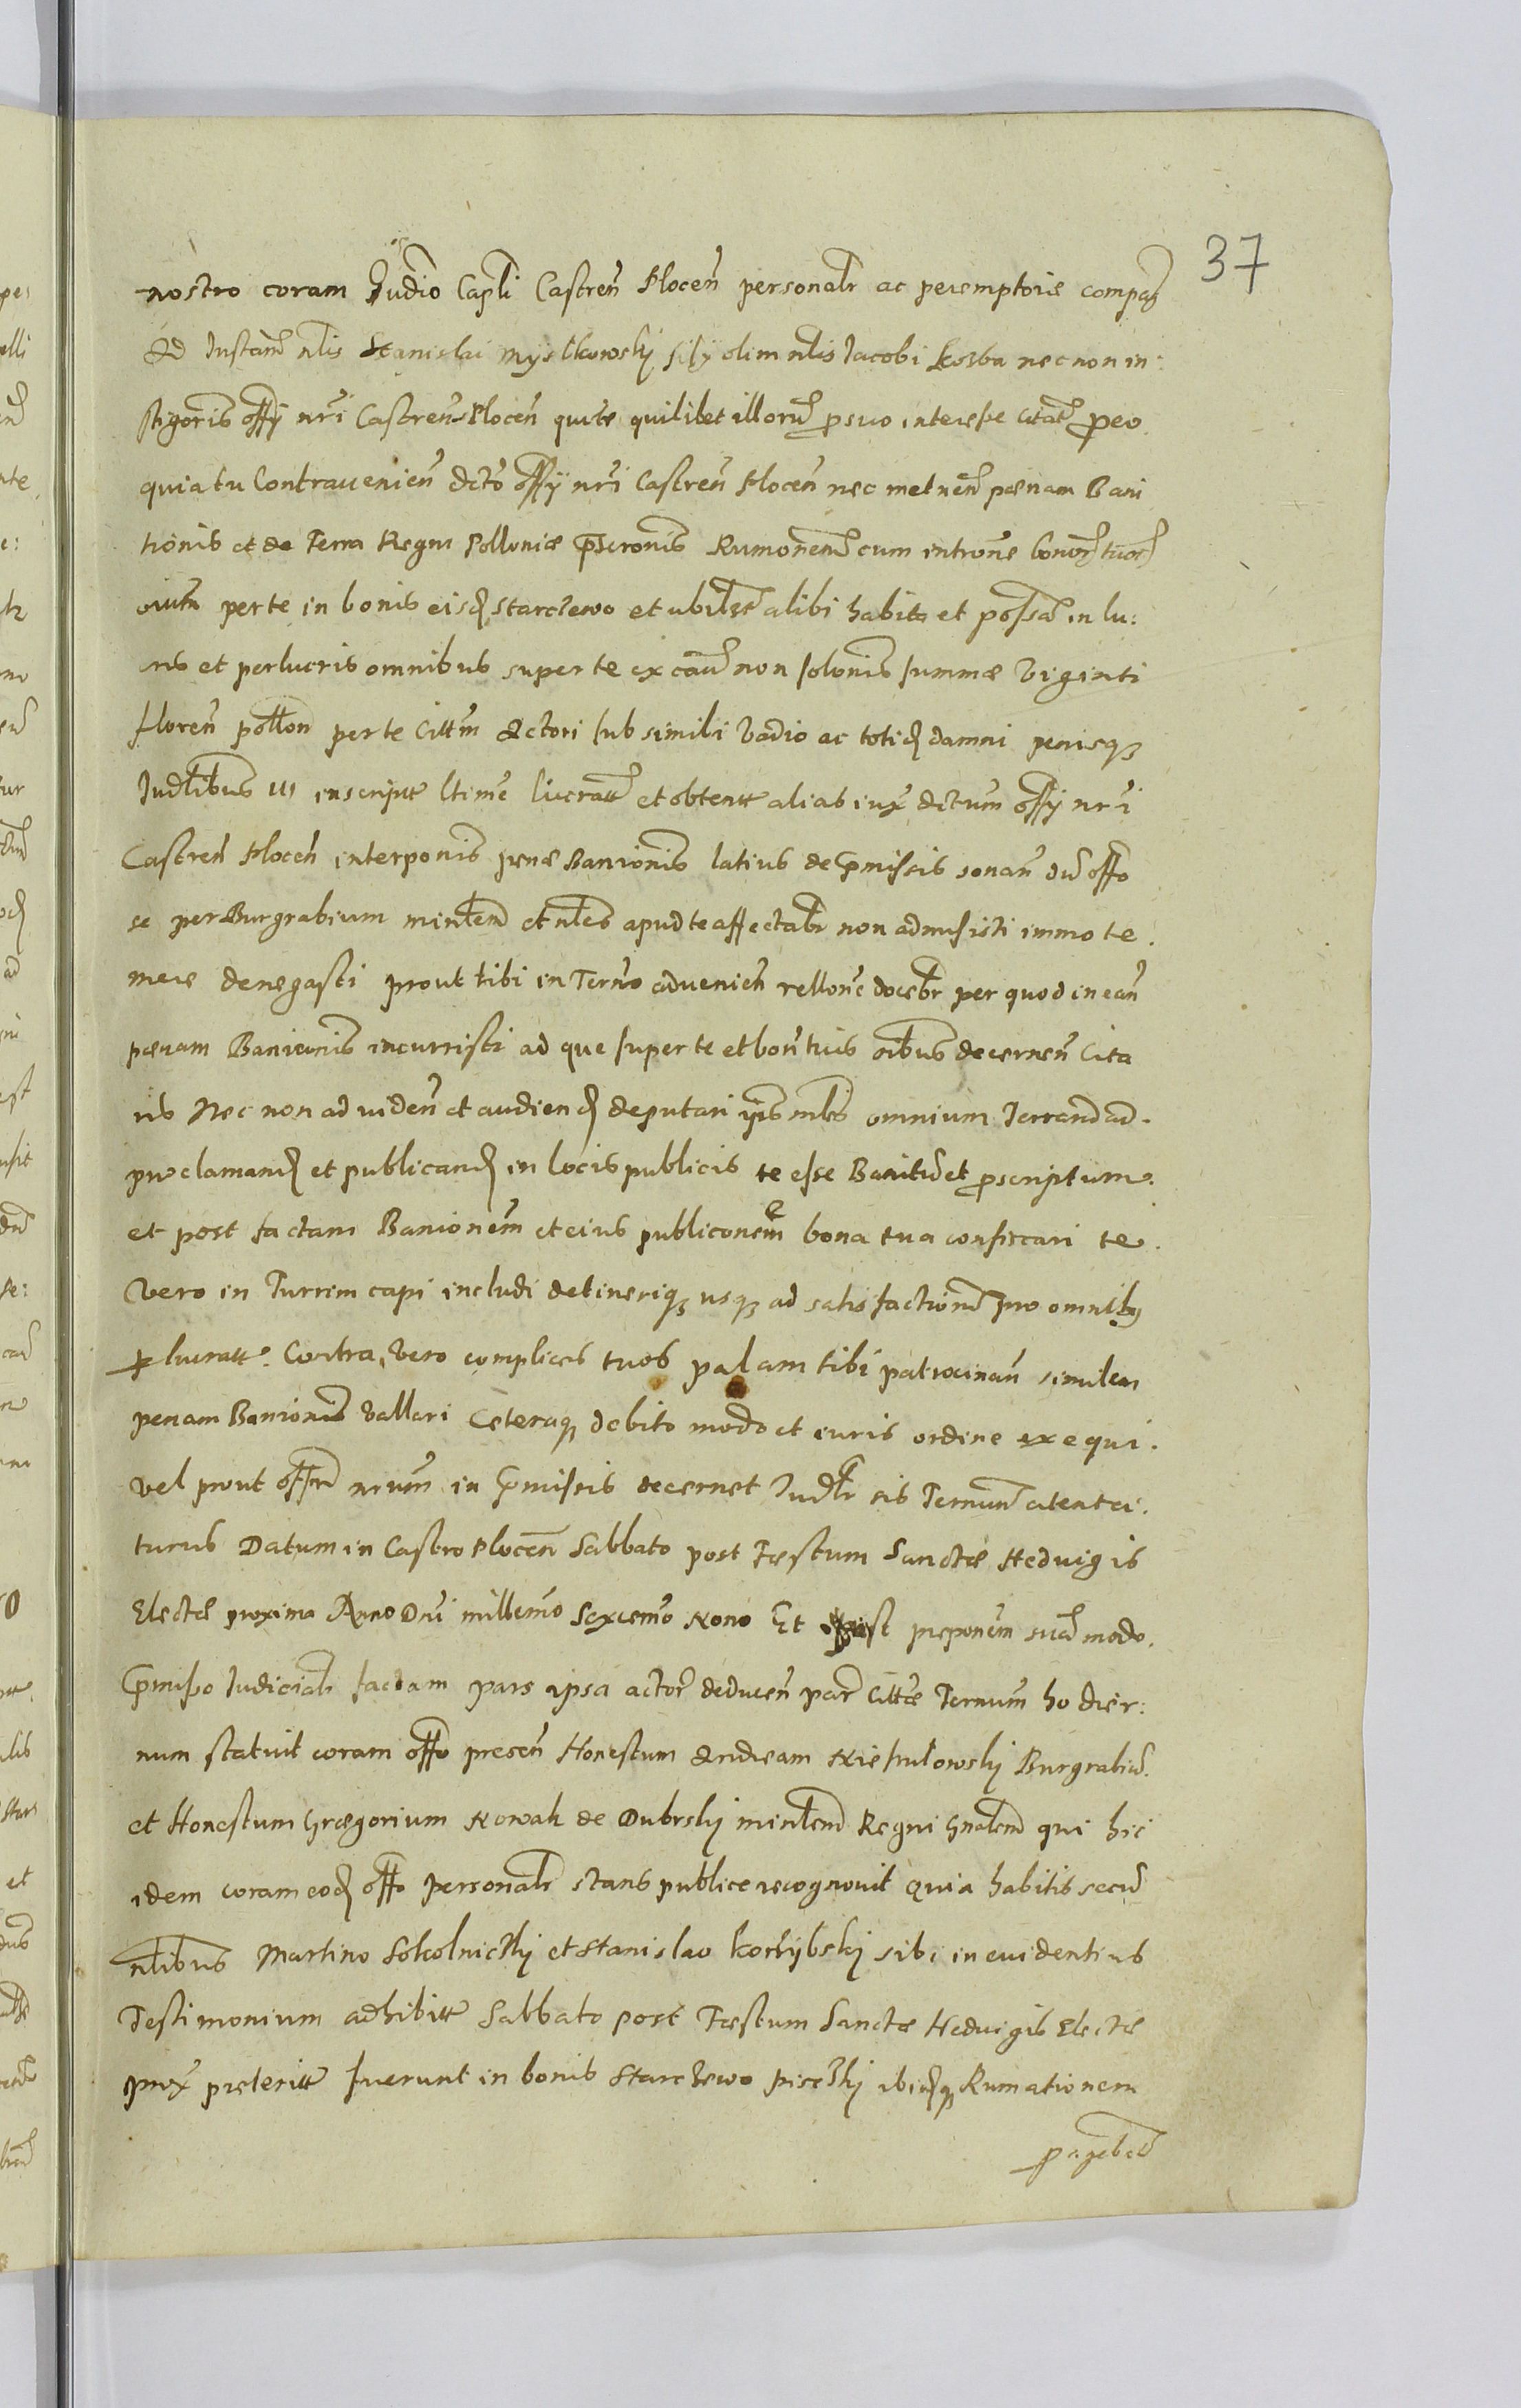 37
nostro coram Judio Capli Castren Plocen personalr ac peremptorie compas
Ad Instam nlis Stanislai Mystkowskj filÿ olim nlis Jacobi Skorba nec non in:
stigoris offÿ nri Castren Plocen qui te quilibet illorū p suo interesse citat p eo
quia tu Contravenien dcto offÿ nri Castren Plocen nec metuen pœnam Bani
tionis et de Terra Regni Polloniæ pscronis Rumonem cum introne bonor tuor
oium per te in bonis eisd Starczewo et ubilbt alibi habita et possa in lu:
ris et perlucris omnibus super te ex cau non solonis summæ Viginti
floren pollon per te Cittm Actori sub simili Vadio ac totid damni penisq
Judlibus III inscript ltime lucratt et obtentt alias iux dctum offÿ nri
Castren Plocen interponis penæ Banionis latius de pmissis sonan du offo
se per Burgrabium minlem et nles apud te affectabr non admisisti immo te.
mere denegasti prout tibi in Termo advenien rellone docebr per quod in ean
pœnam Banionis incurristi ad que super te et bon tuis oibus decernen Cita
ris Nec non ad viden et audiend deputari ipis mles omnium Terrarum ad.
proclamand et publicand in locis publicis te esse Banitū et pscriptum.
et post factam Banionem et eius publiconem bona tua confiscari te.
Vero in Turrim capi includi detineriq usq ad satisfactionē pro omnibq
p lucratt. Contra Vero complices tuos palam tibi patrocinan similem
penam Banionis Vallari Ceteraq debito modo et iuris ordine exequi.
vel prout offm nrum in pmissis decernet Judlr sis Termum attentat.
turus Datum in Castro Plocen Sabbato post Fæstum Sanctæ Hedvigis
Electæ proxima Anno Dni millemo Sexcemo Nono Et post preponem sua modo.
pmisso Judicialr factam pars ipsa actor deducen par Cittæ Termum hodier:
num statuit coram offo presen Honestum Andream Burgrabiū.
et Honestum Grægorium Nowak de Dubrskj minlem Regni gnalem qui hic
idem coram eod offo personalr stans publice recognovit quia habitis secū
nlibus Martino Sokolnickj et Stanislao sibi in evidentius
Testimonium adhibitt Sabbato post Fæstum Sanctæ Hedvigis Electæ
prox preteritt fuerunt in bonis Starczewo ibidq Rumationem